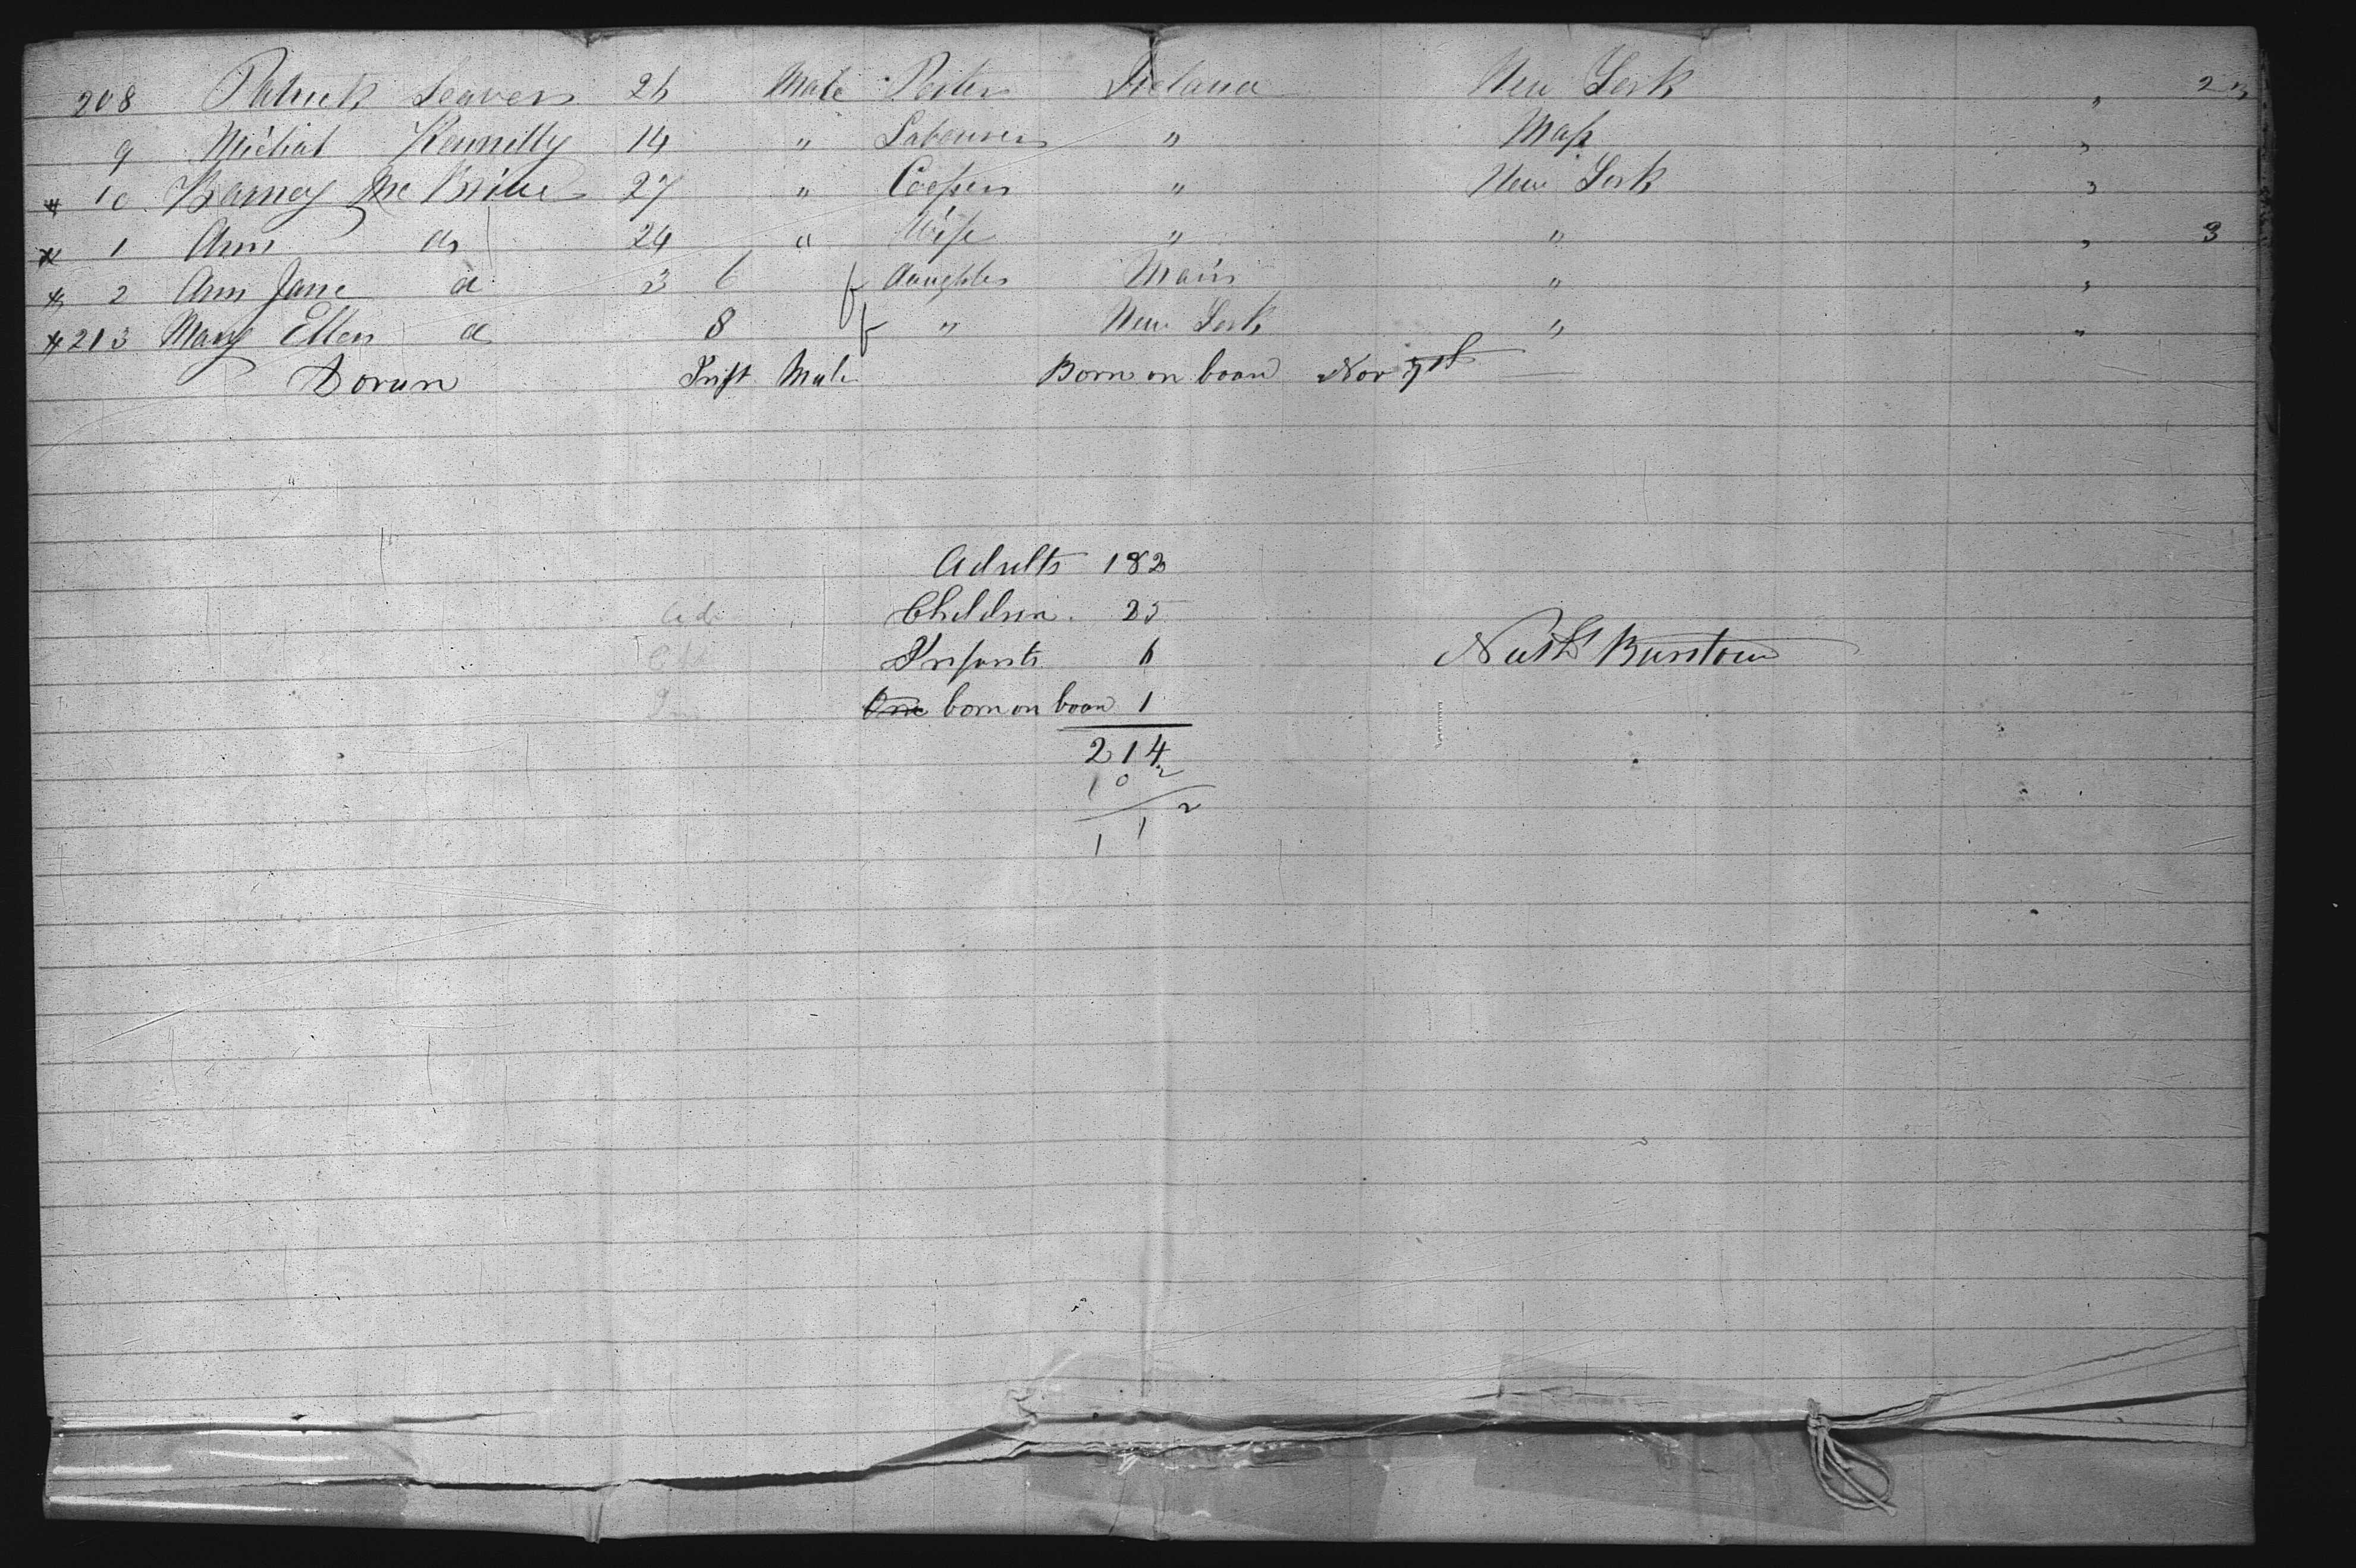 208 Patrick Leaven 26 Male Porter Ireland New York " 2
9 Michal Kennelly 14 " Labourer " Mass "
* 10 Barney Mc Bride 27 " Cooper " New York "
* 1 Ann do 24 " Wife " " " 3
* 2 Ann Jane d 3 6 f daughter Main " "
* 213 Mary Ellen d 8 f " New York " "
Doran Inft Male Born on board Nov
Adults 182
Children. 25
Infants 6
One born on board 1
214
10 2
1 1 2